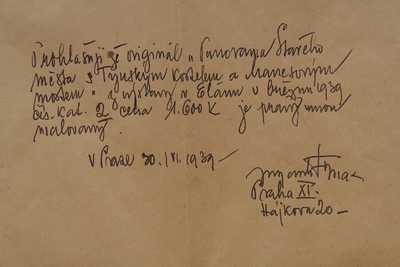 Prohlašuji že originál „Panorama Starého
města s Týnským kostelem a Mánesovým
mostem" z výstavy v Elánu v březnu 1939
čís. kat. 2 cena 1.600 K je pravý mnou
malovaný.
V Praze 30./VI. 1939 —
Praha XI.
Hájkova 20 —